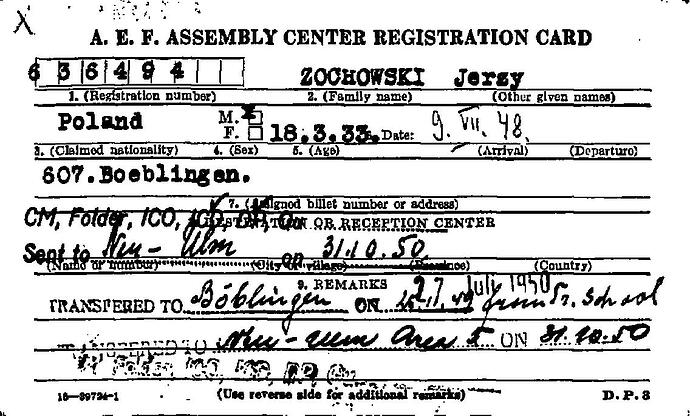 X
A. E. F. ASSEMBLY CENTER REGISTRATION CARD
636494 ZOCHOWSKI Jerzy
1. (Registration number) 2. (Family name) (Other given names)
Poland M. X F. 18.3.33. Date: 9. VII. 48.
3. (Claimed nationality) 4. (Sex) 5. (Age) (Arrival) (Departure)
607.Boeblingen.
7. (Assigned billet number or address)
CM, Folder, ICO, REGISTRATION OR RECEPTION CENTER
Sent to Neu-Ulm on 31.10.50
(Name or number) (City or village) (Province) (Country)
9. REMARKS 27 July 1950
TRANSFERRED TO Böblingen ON from School
TRANSFERRED TO Neu-Ulm Area 5 ON 31.10.50
16-39724-1 (Use reverse side for additional remarks) D. P. 3